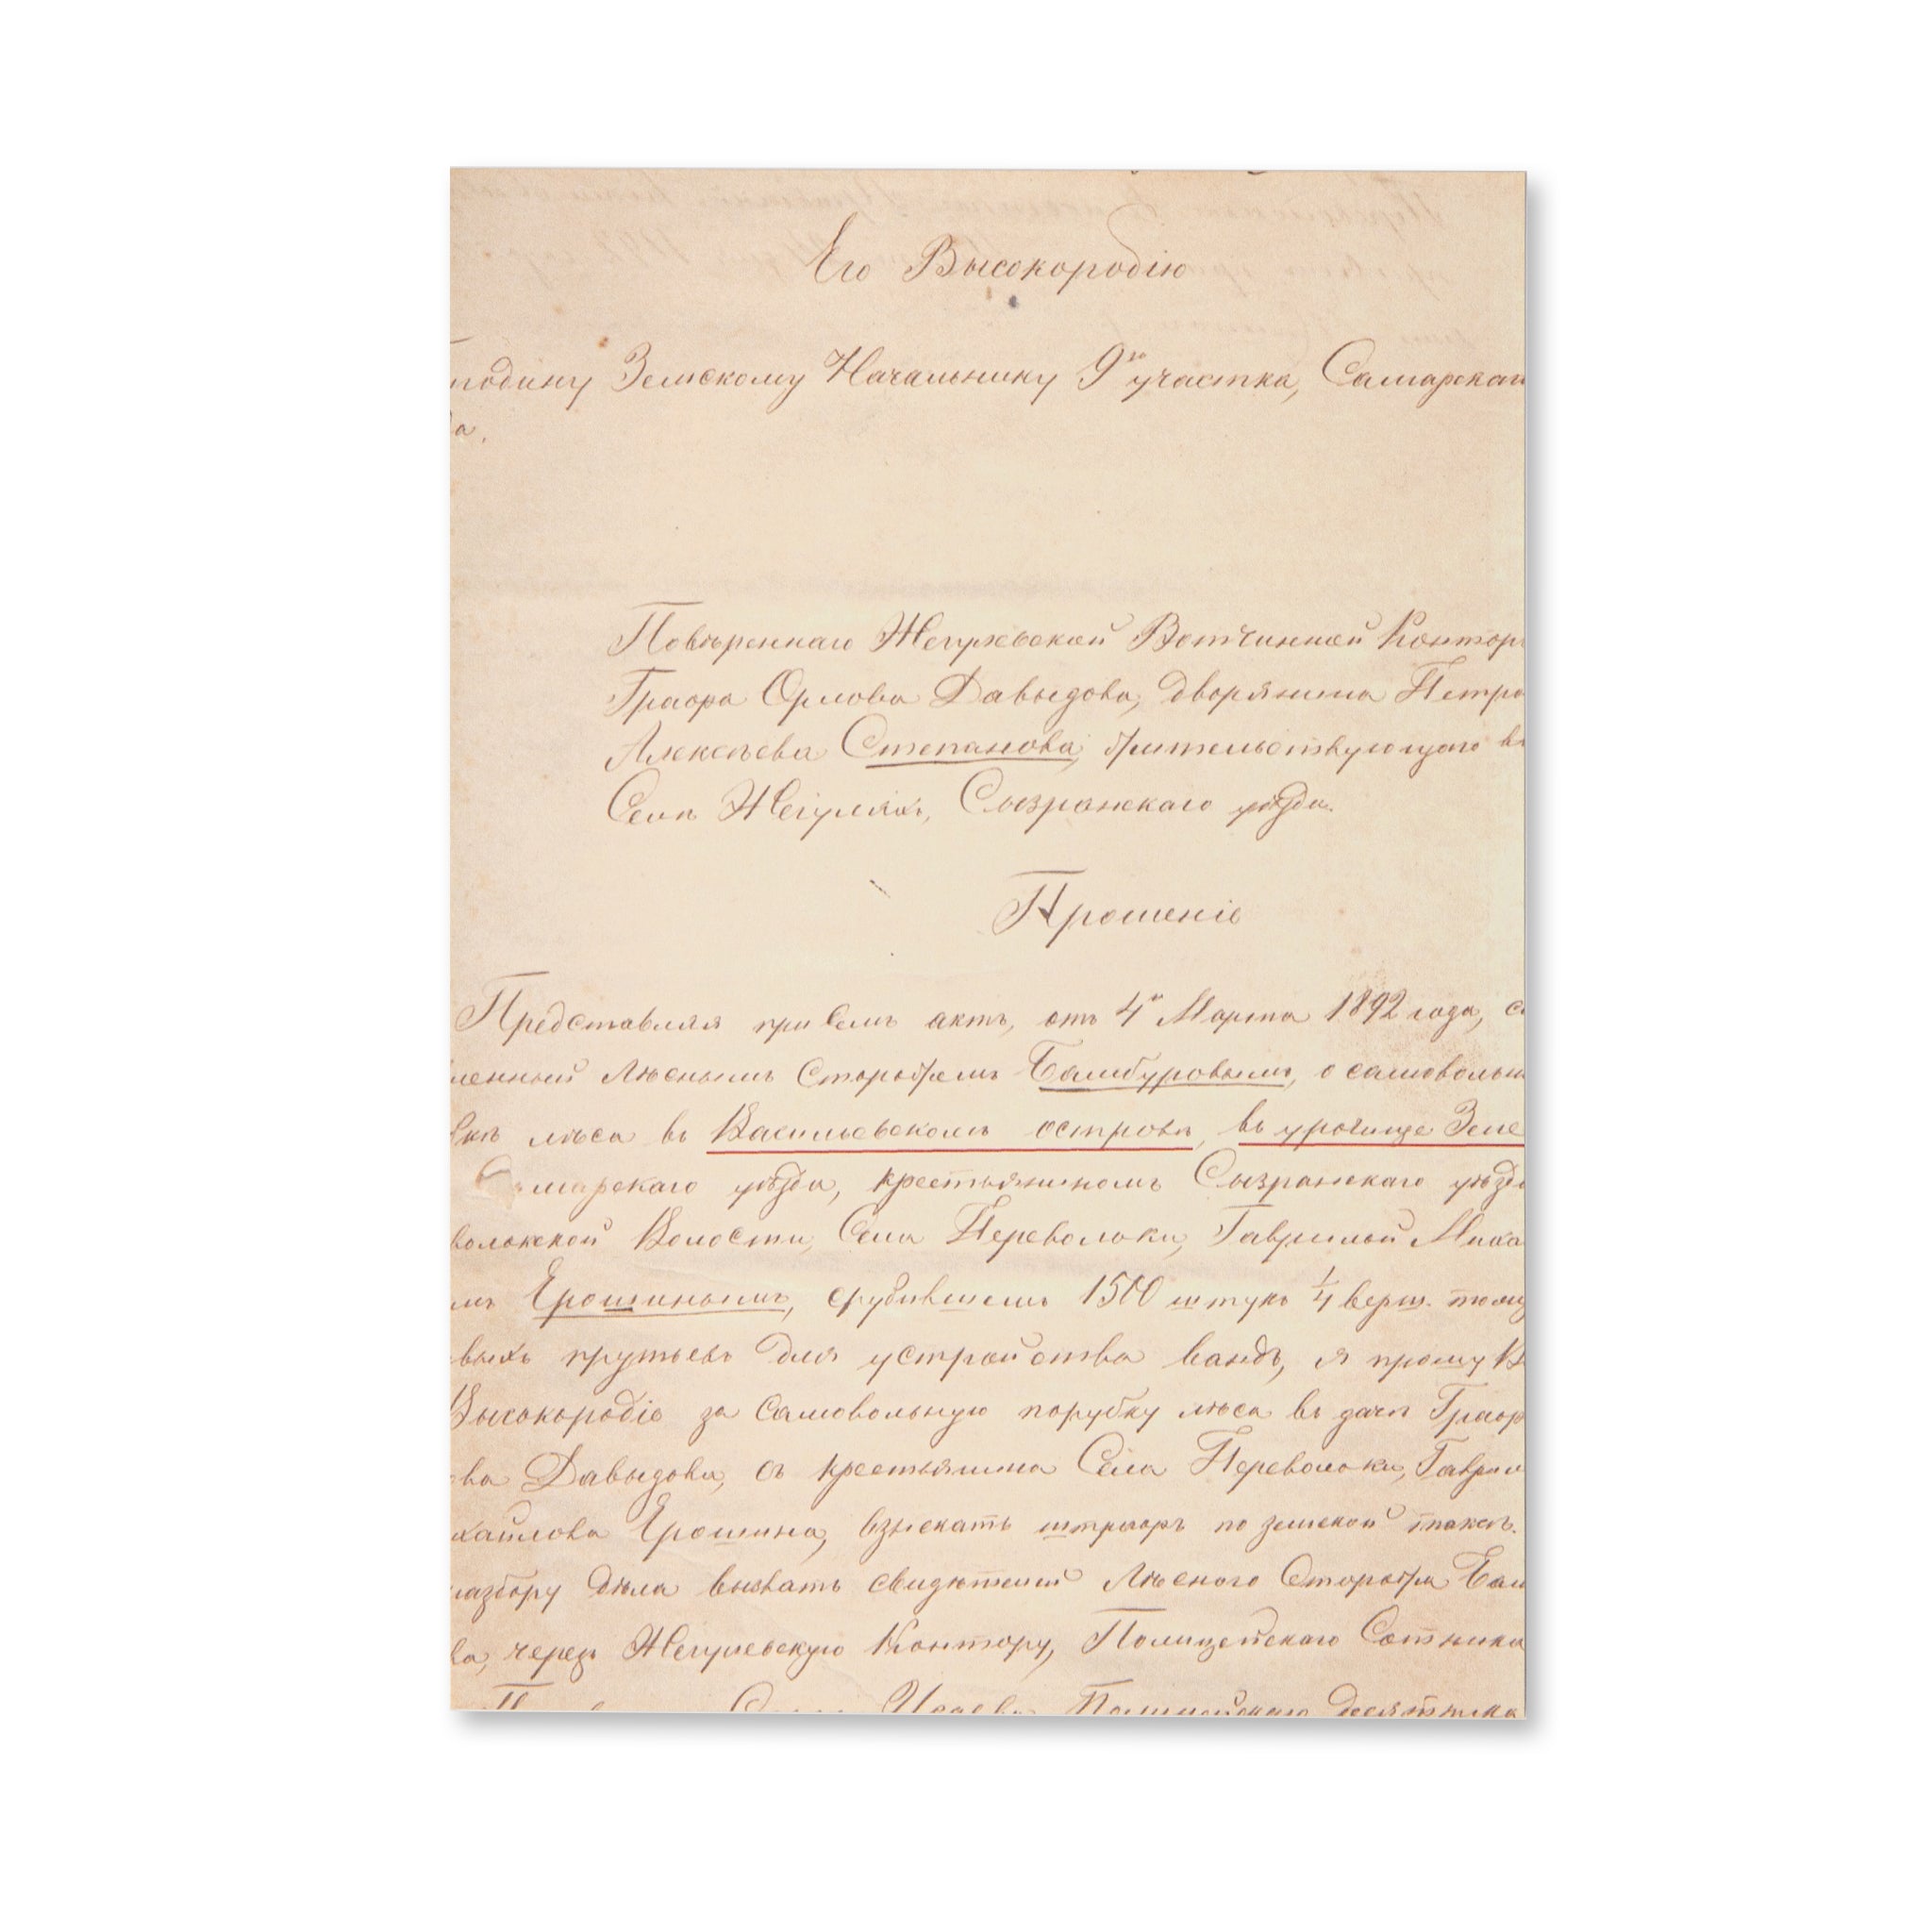 Его Высокородію
подину Земскому Начальнику 9го участка, Самарскаг
да.
Повѣреннаго Жегулевской Вотчинной Контор
Графа Орлова Давыдова, дворянина Петра
Алексѣева Степанова, жительствующаго въ
Селѣ Жегуляхъ, Сызранскаго уѣзда.
Прошеніе
Представляя при семъ актъ, отъ 4го Марта 1892 года, со
ленный Лѣснымъ Сторожемъ Бамбуровымъ, о самовольн
бкѣ лѣса въ Васильевскомъ островѣ, въ урочище Зеле
Самарскаго уѣзда, крестьяниномъ Сызранскаго уѣзда
волокской Волости, Села Переволоки, Гаврилой Миха
мъ Ерошинымъ, срубившемъ 1500 штукъ 1/4 верш. толщ
выхъ прутьевъ для устройства вандъ, я прошу В
Высокородіе за самовольную порубку лѣса въ дачѣ Граф
ва Давыдова, съ крестьянина Села Переволоки, Гаврил
хайлова Ерошина, взыскать штрафъ по земской таксѣ.
разбору дѣла вызвать свидѣтелей Лѣсного Сторожа Бам
ва, черезъ Жегулевскую Контору, Полицейскаго Сотника
Исаева Полицейскаго Десятника